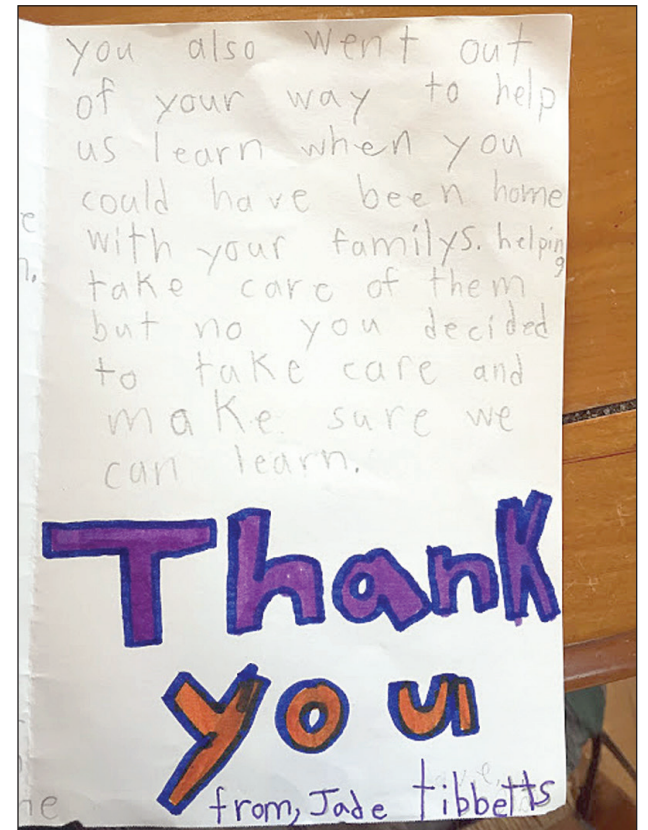 you also went out
of your way to help
us learn when you
could have been home
with your familys. helping
take care of them
but no you decided
to take care and
make sure we
can learn.
Thank
you
from, Jade tibbetts